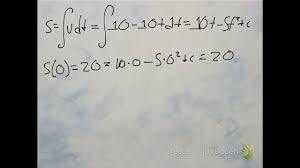 S=∫vdt=∫10-10*tdt=10t-5t²+c
S(0)=20=10·0-5·0²+c=20